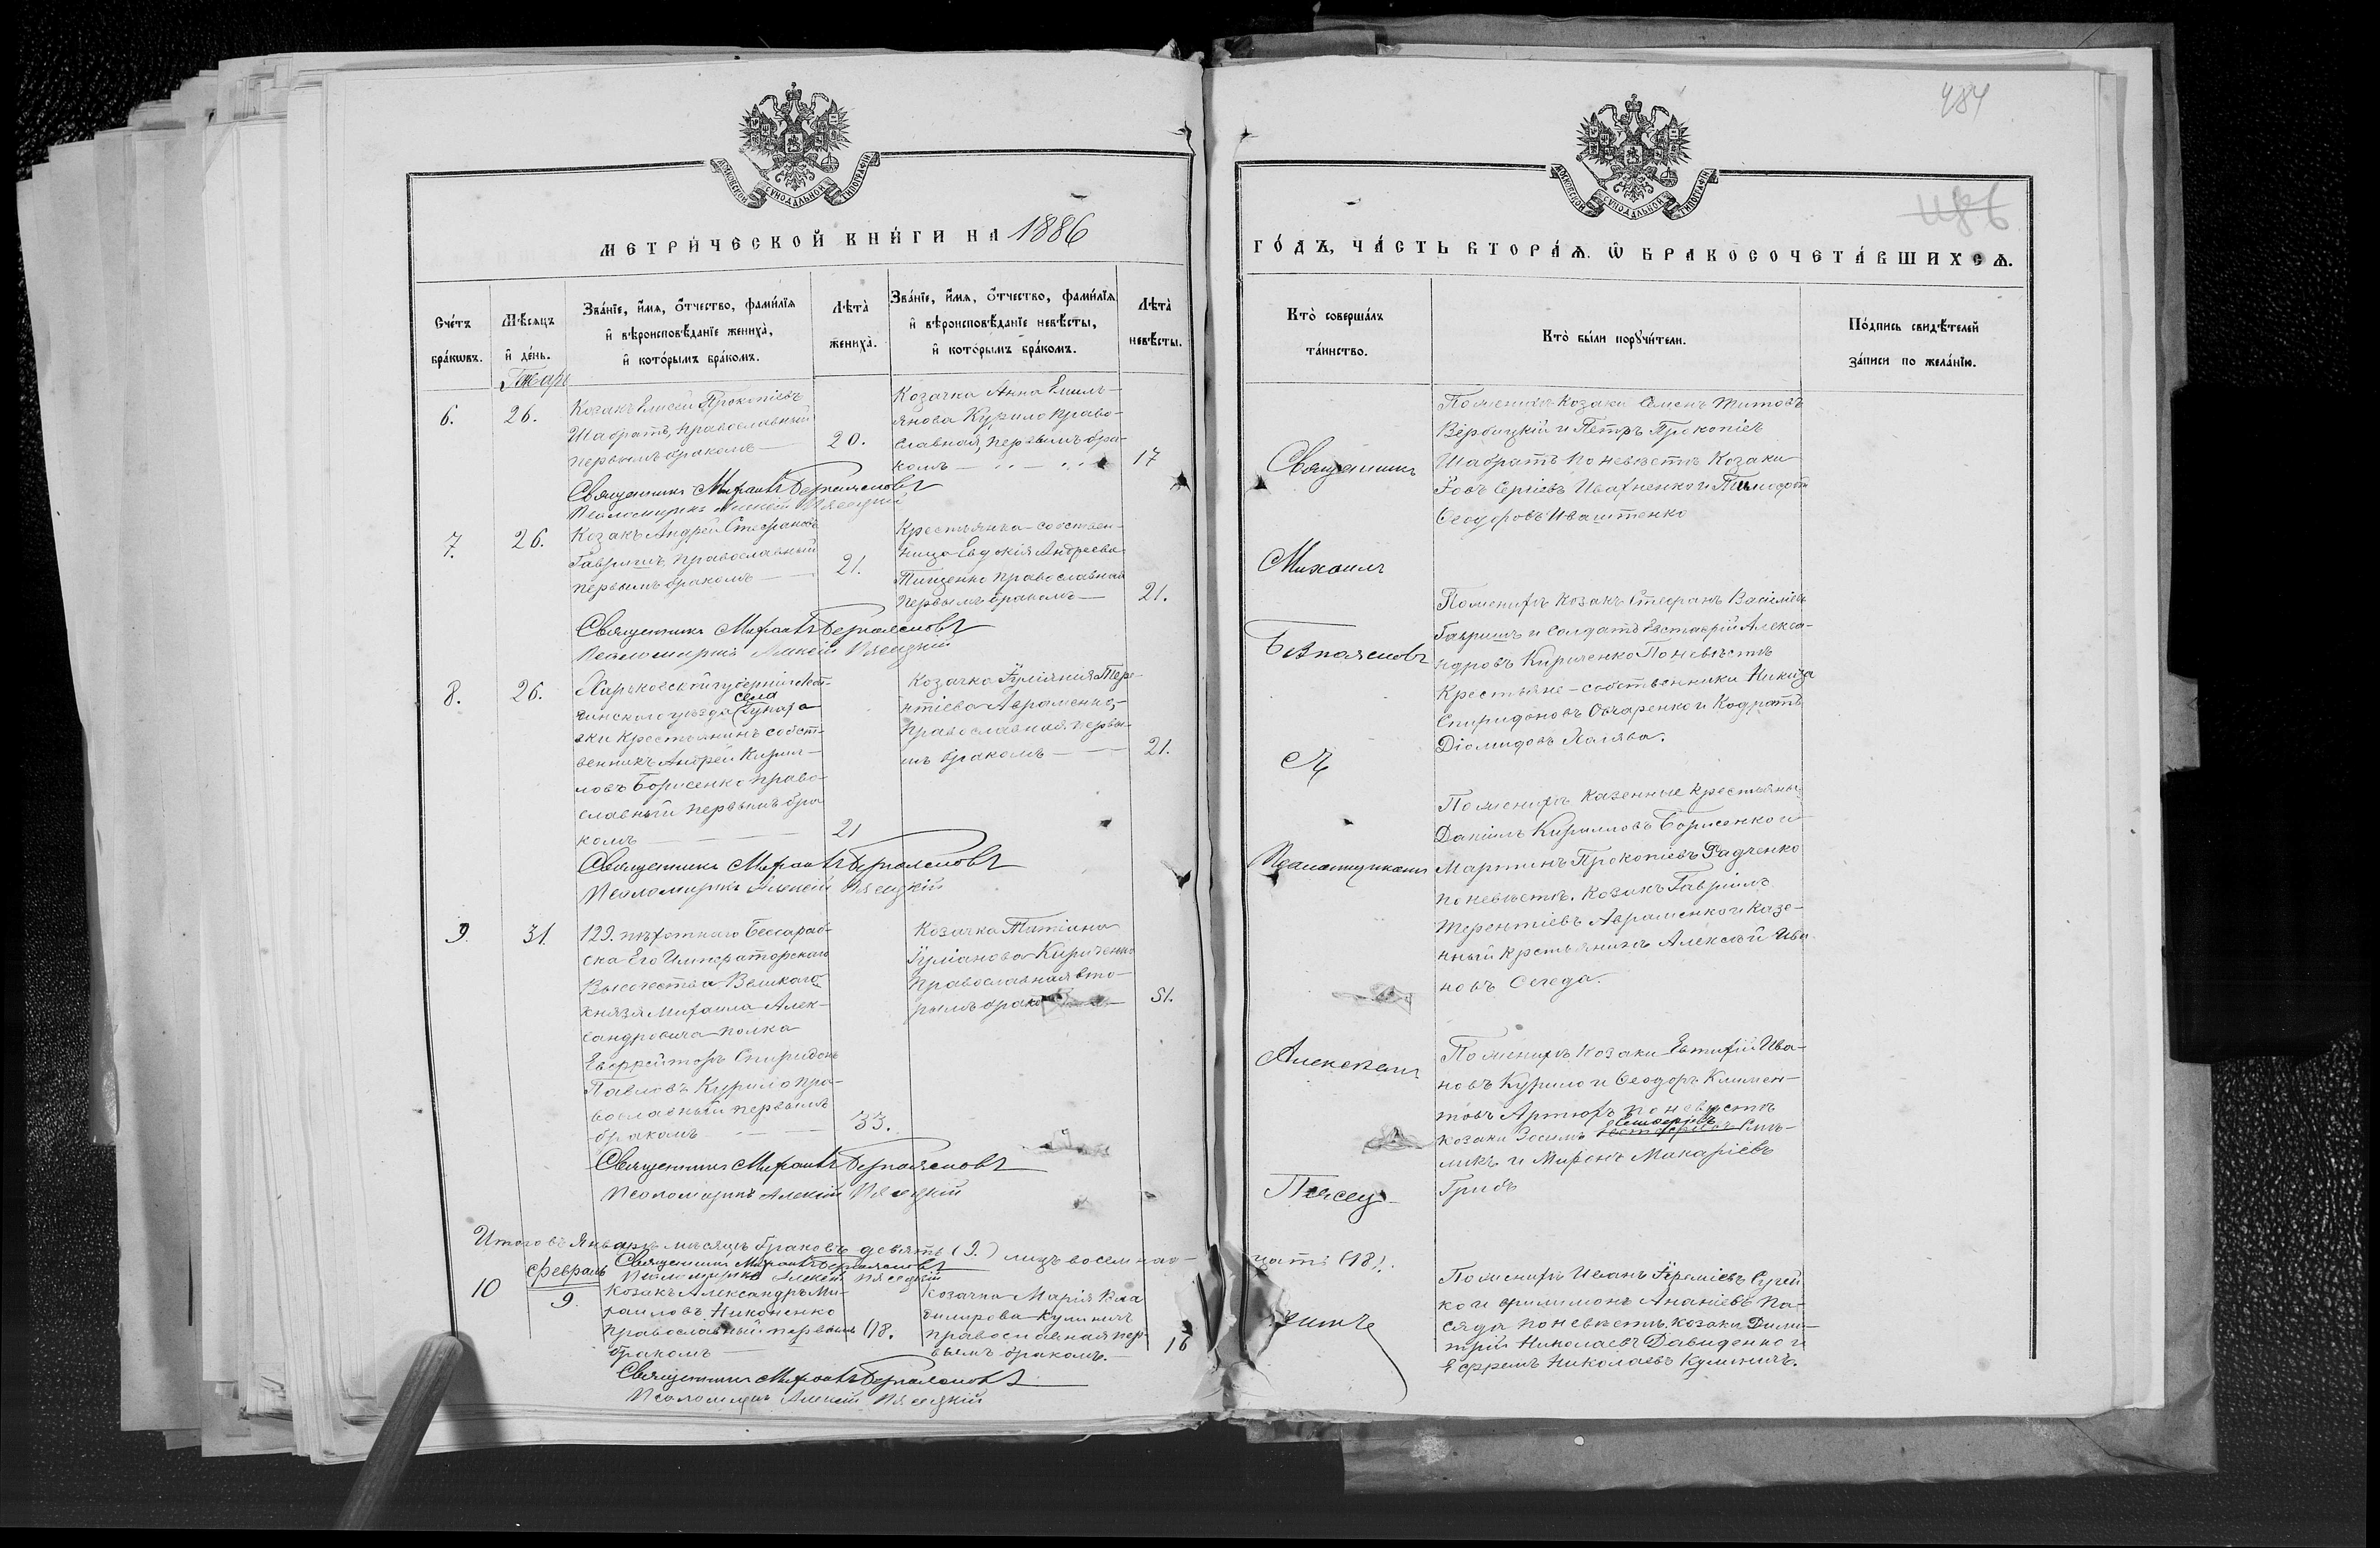 МОСКОВСКОЙ СѴНОДАЛЬНОЙ ТИПОГРАФІИ
МЕТРИ́ЧЕСКОЙ КНИ́ГИ НА 1886
Сче́тъ бра́кѡвъ.
Мѣ́сяцъ и де́нь.
Зва́нїе, и҆́мѧ, ѻ҆́тчество, фами́лїѧ и҆ вѣроисповѣ́данїе жениха̀, и҆ кото́рымъ бра́комъ.
Лѣта̀ жениха̀.
Зва́нїе, и҆́мѧ, ѻ҆́тчество, фами́лїѧ и҆ вѣроисповѣ́данїе невѣ́сты, и҆ кото́рымъ бра́комъ.
Лѣта̀ невѣ́сты.
6.
26.
Козакъ Елисей Прокопіевъ
Шабратъ, православный
первымъ бракомъ
20.
Козачка Анна Емиль-
янова Курило право-
славная, первымъ бра-
комъ
17
Священникъ Михаилъ Безпоясновъ
Псаломщикъ Алексій Пясецкій
7.
26.
Козакъ Андрей Стефановъ
Гавришъ, православный
первымъ бракомъ
21.
Крестьянка-собствен-
ница Евдокія Андреева
Тищенко православная
первымъ бракомъ
21.
Священникъ Михаилъ Безпоясновъ
Псаломщикъ Алексій Пясецкій
8.
26.
Харьковской губерніи
уѣзда села
крестьянинъ собст-
венникъ Андрей Кирил-
ловъ Борисенко право-
славный первымъ бра
комъ
21
Козачка Іуліянія Тере-
нтіева Авраменко,
православная первы-
мъ бракомъ
21.
Священникъ Михаилъ Безпоясновъ
Псаломщикъ Алексій Пясецкій
9.
31.
129. пѣхотнаго Бессараб-
ска Его Императорскаго
Высочества Великаго
князя Михаила Алек-
сандровича полка
Ефрейторъ Спиридонъ
Павловъ Курило пра-
вославный первымъ
бракомъ
33.
Козачка Татіана
Іуліанова Кириченко
православная вто-
рымъ брако
31.
Священникъ Михаилъ Безпоясновъ
Псаломщикъ Алексій Пясецкій
Итого въ Январѣ мѣсяцѣ браковъ девять (9.) лицъ восемнад-
Священникъ Михаилъ Безпоясновъ
Псаломщикъ Алексій Пясецкій
10
Февраль
9.
Козакъ Александръ Ми-
хаиловъ Никоненко
православный первымъ
бракомъ
18.
Козачка Марія Вла
димирова Кулиничъ
православная пер-
вымъ бракомъ.
16
Священникъ Михаилъ Безпоясновъ
Псаломщикъ Алексій Пясецкій
484
МОСКОВСКОЙ СѴНОДАЛЬНОЙ ТИПОГРАФІИ
ГО́ДЪ, ЧА́СТЬ ВТОРА́Ѧ. Ѽ БРАКОСОЧЕТА́ВШИХСѦ.
Кто̀ соверша́лъ та́инство.
Кто̀ бы́ли порꙋчи́тели.
По́дпись свидѣ́телей за́писи по жела́нїю.
Священникъ
Михаилъ
Безпоясновъ
съ
Псаломщикомъ
Алексѣемъ
Пясец-
кимъ
По женихѣ козаки Семенъ Титовъ
Вербицкій и Петръ Прокопіевъ
Шабратъ По невѣстѣ Козаки
Іовъ Сергіевъ Ивахненко и Тимофей
Феодоровъ Иваштенко
По женихѣ Козакъ Стефанъ Василіевъ
Гавришъ и Солдатъ Евстафій Алекса-
ндровъ Кириченко По невѣстѣ
Крестьяне-собственники Никита
Спиридоновъ Овчаренко и Кодратъ
Діомидовъ Халява.
По женихѣ казенные крестьяне
Даніилъ Кирилловъ Борисенко и
Мартинъ Прокопіевъ Радченко
по невѣстѣ. Козакъ Гавріилъ
Терентіевъ Авраменко и Казе-
нный крестьянинъ Алексѣй Ива-
новъ Сегеда.
По женихѣ козаки Евтихій Ива-
новъ Курило и Феодоръ Климен-
товъ Артюхъ по невѣстѣ
козаки Зосимъ
и Миронъ Макаріевъ
Грибъ
цать (18).
По женихѣ Иванъ
и Филимонъ Ананіевъ Па-
сяда по невѣстѣ. козаки Дими-
трій Николаевъ Давиденко и
Ефремъ Николаевъ Кулиничъ.